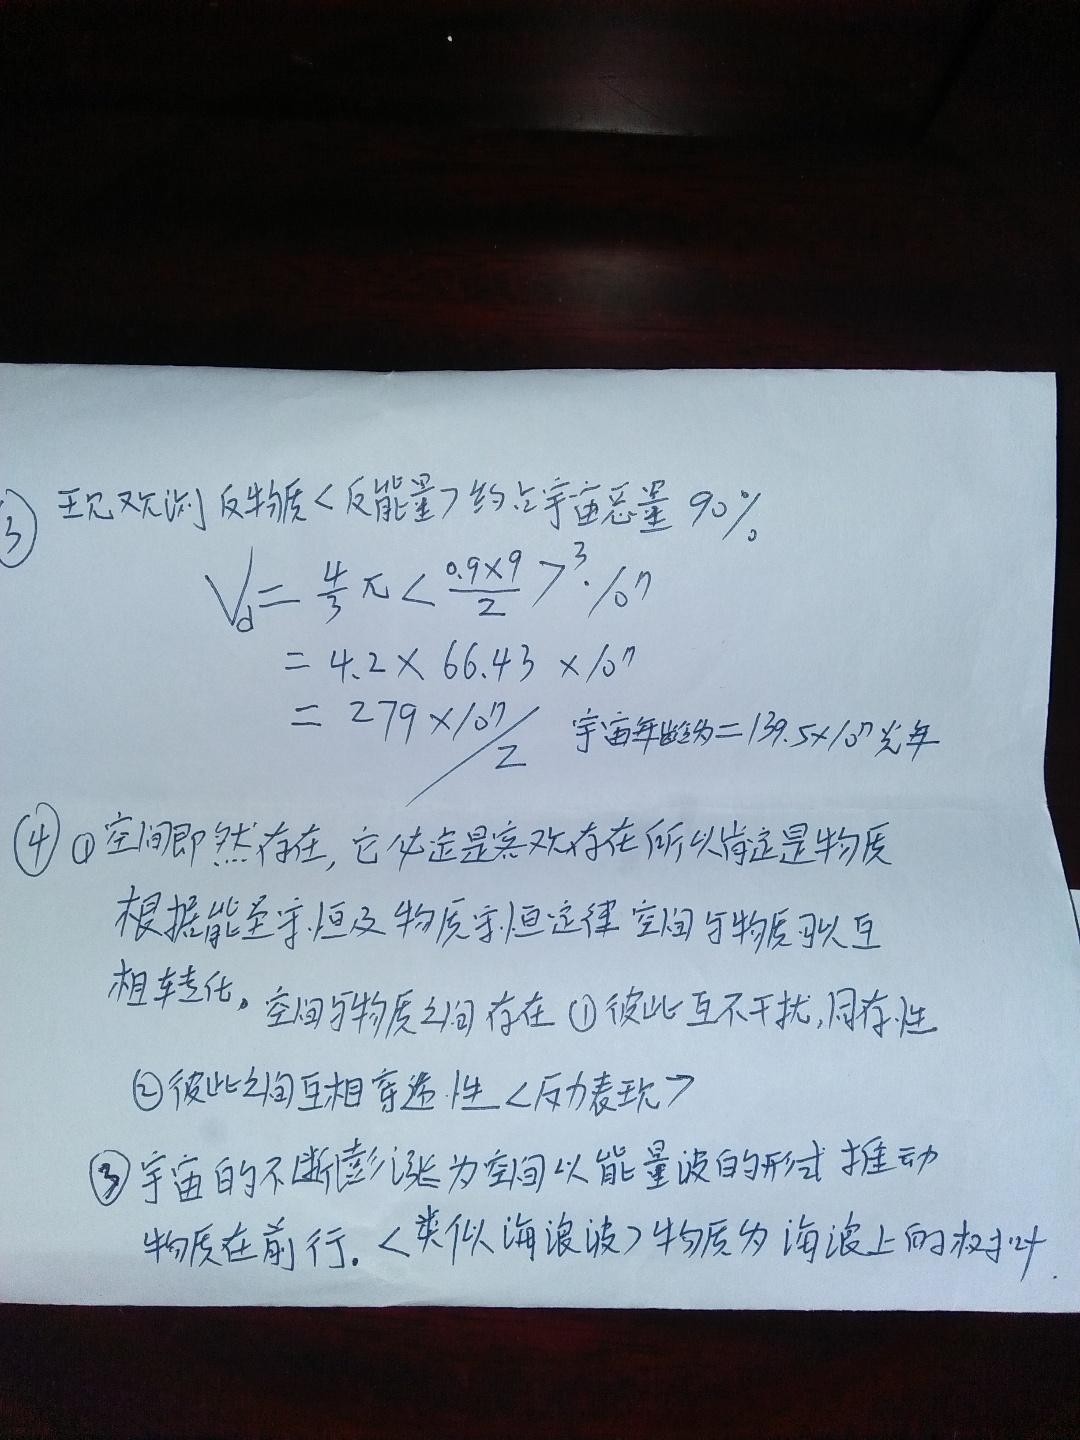 ③ 现观测反物质<反能量>约占宇宙总量90%
Vd = 4/3 π <0.9×9/2>³·10ⁿ
= 4.2×66.43×10ⁿ
= 279×10ⁿ/2 宇宙年龄约为=139.5×10ⁿ光年
④ ① 空间即然存在,它必定是客观存在所以肯定是物质
根据能量守恒及物质守恒定律 空间与物质可以互
相转化。空间与物质之间存在 ① 彼此互不干扰,同存性
② 彼此之间互相穿透性<反力表现>
③ 宇宙的不断膨涨为空间以能量波的形式推动
物质在前行.<类似海浪波>物质为海浪上的树叶.